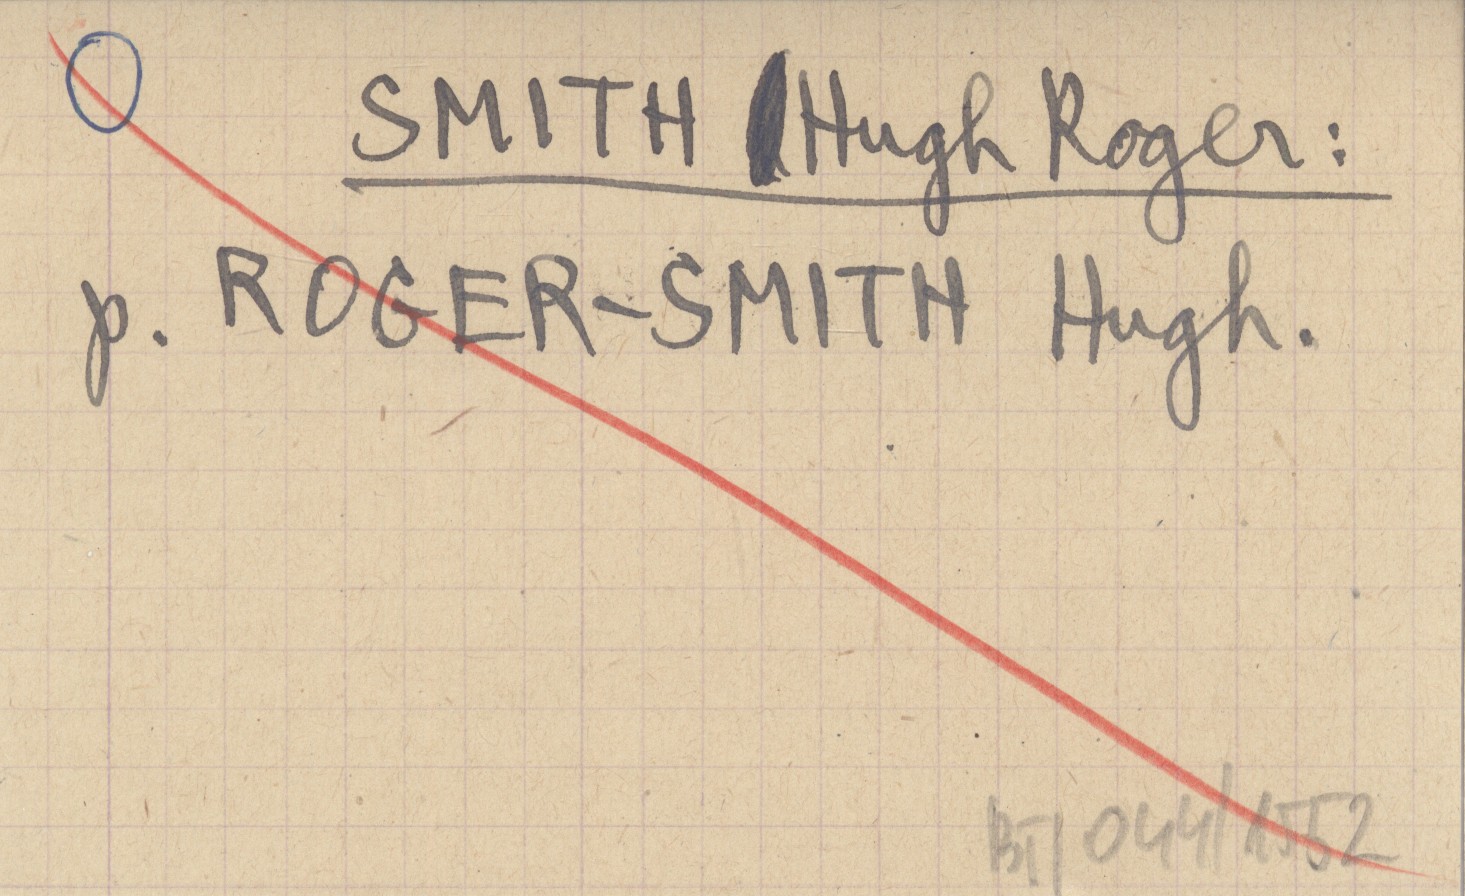 SMITH Hugh Roger:
p. ROGER-SMITH Hugh.
BI/044/1552